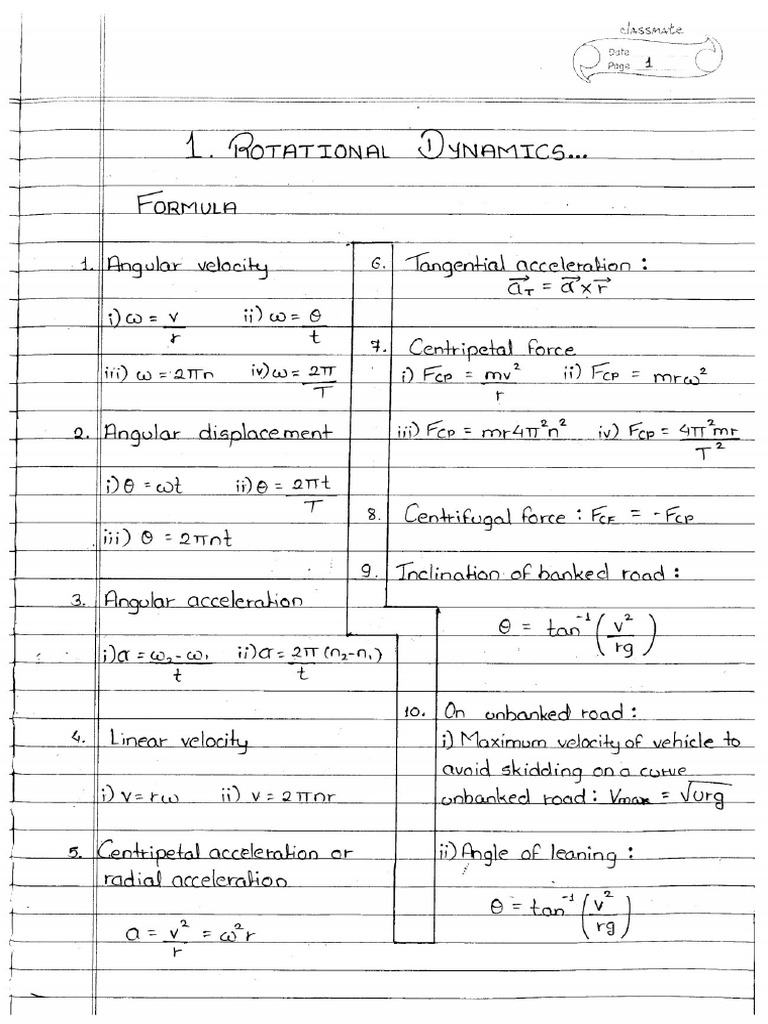 classmate
Date
Page 1
1. ROTATIONAL DYNAMICS...
FORMULA
1. Angular velocity
i) ω = v/r ii) ω = θ/t
iii) ω = 2πn iv) ω = 2π/T
2. Angular displacement
i) θ = ωt ii) θ = 2πt/T
iii) θ = 2πnt
3. Angular acceleration
i) α = ω₂-ω₁/t ii) α = 2π(n₂-n₁)/t
4. Linear velocity
i) v = rω ii) v = 2πnr
5. Centripetal acceleration or
radial acceleration
a = v²/r = ω²r
6. Tangential acceleration :
a⃗T = α⃗ × r⃗
7. Centripetal force
i) FCP = mv²/r ii) FCP = mrω²
iii) FCP = mr4π²n² iv) FCP = 4π²mr/T²
8. Centrifugal force : FCF = -FCP
9. Inclination of banked road :
θ = tan⁻¹(v²/rg)
10. On unbanked road :
i) Maximum velocity of vehicle to
avoid skidding on a curve
unbanked road : Vmax = √urg
ii) Angle of leaning :
θ = tan⁻¹(v²/rg)